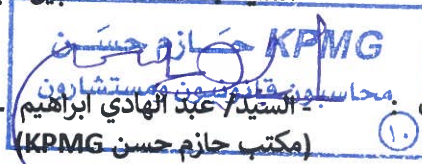 KPMG حـازم حسـن
محاسبون قانونيون ومستشارون
- السيد/ عبد الهادي ابراهيم
(مكتب حازم حسن KPMG)
١٠